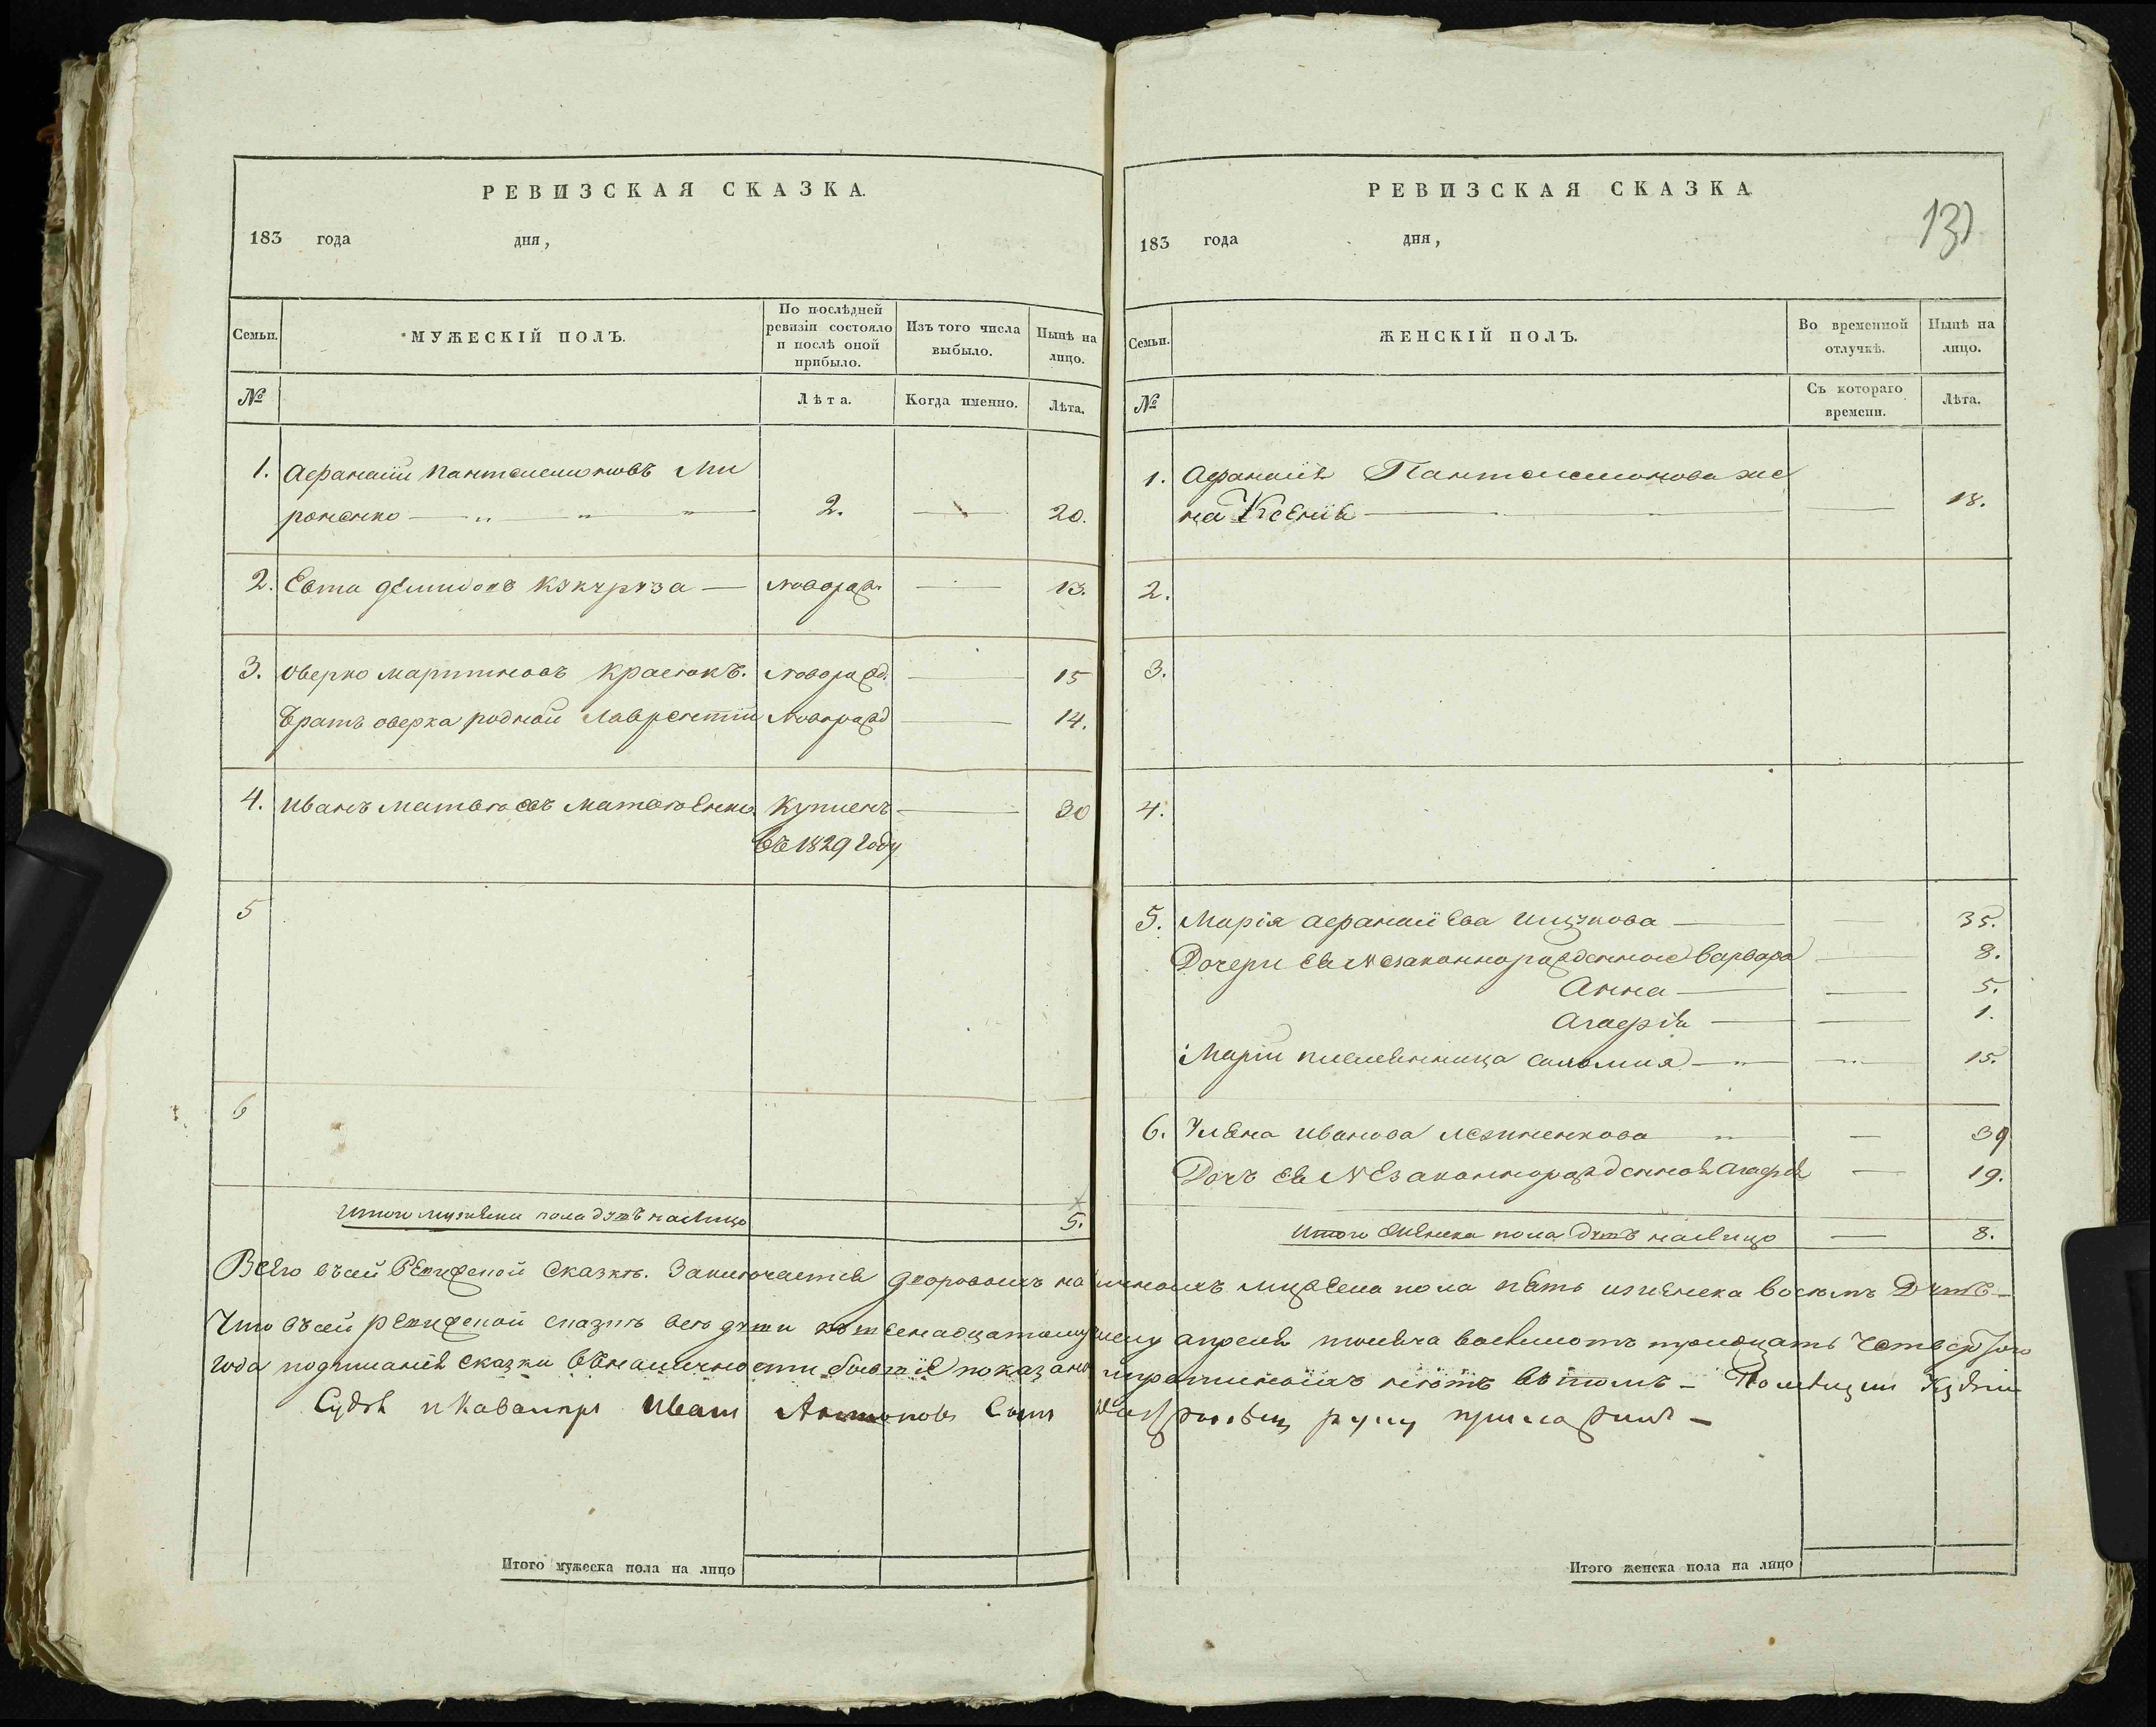 РЕВИЗСКАЯ СКАЗКА.
183 года дня,
Семьи. МУЖЕСКІЙ ПОЛЪ. По послѣдней ревизіи состояло и послѣ оной прибыло. Изъ того числа выбыло. Нынѣ на лицо.
№ Лѣта. Когда именно. Лѣта.
1. Афанасій Пантелемоновъ Ми
роненко 2. 20.
2. Евта Демидовъ Кукуруза новорожд. 13.
3. Оверко Мартиновъ Красюкъ. новорожд. 15
Братъ оверка родной Лаврентій Новорожд 14.
4. Иванъ Матвѣевъ Матвѣенко Купленъ 30
въ 1829 году
5
6
Итого мужеска пола душъ налицо 5.
Итого мужеска пола на лицо
РЕВИЗСКАЯ СКАЗКА
131
183 года дня,
Семьи. ЖЕНСКІЙ ПОЛЪ. Во временной отлучкѣ. Нынѣ на лицо.
№ Съ котораго времени. Лѣта.
1. Афанасія Пантелемонова же
на Ксенія 18.
2.
3.
4.
5. Марія Афанасіева 35.
Дочери ея незаконнорожденные Варвара 8.
Анна 5.
Агафія 1.
Маріи племянница Саломия 15.
6. Уляна Иванова 39
Дочъ ея Незаконнорожденная Агафія 19.
Итого женска пола душъ налицо 8.
Всего въсей Ревизской сказкѣ. Заключается дворовыхъ наличныхъ мужеска пола пять изженска восѣмъ Душъ
Что всей ревизской сказкѣ всѣ души апреля тысяча восемсотъ тридцать четвертого
года подписанія сказки въналичности бывшіе показаны ипрописныхъ нѣтъ вътомъ Помѣщик
Судя иКавалиръ Иванъ Антоновъ Сынъ руку приложилъ
Итого женска пола на лицо